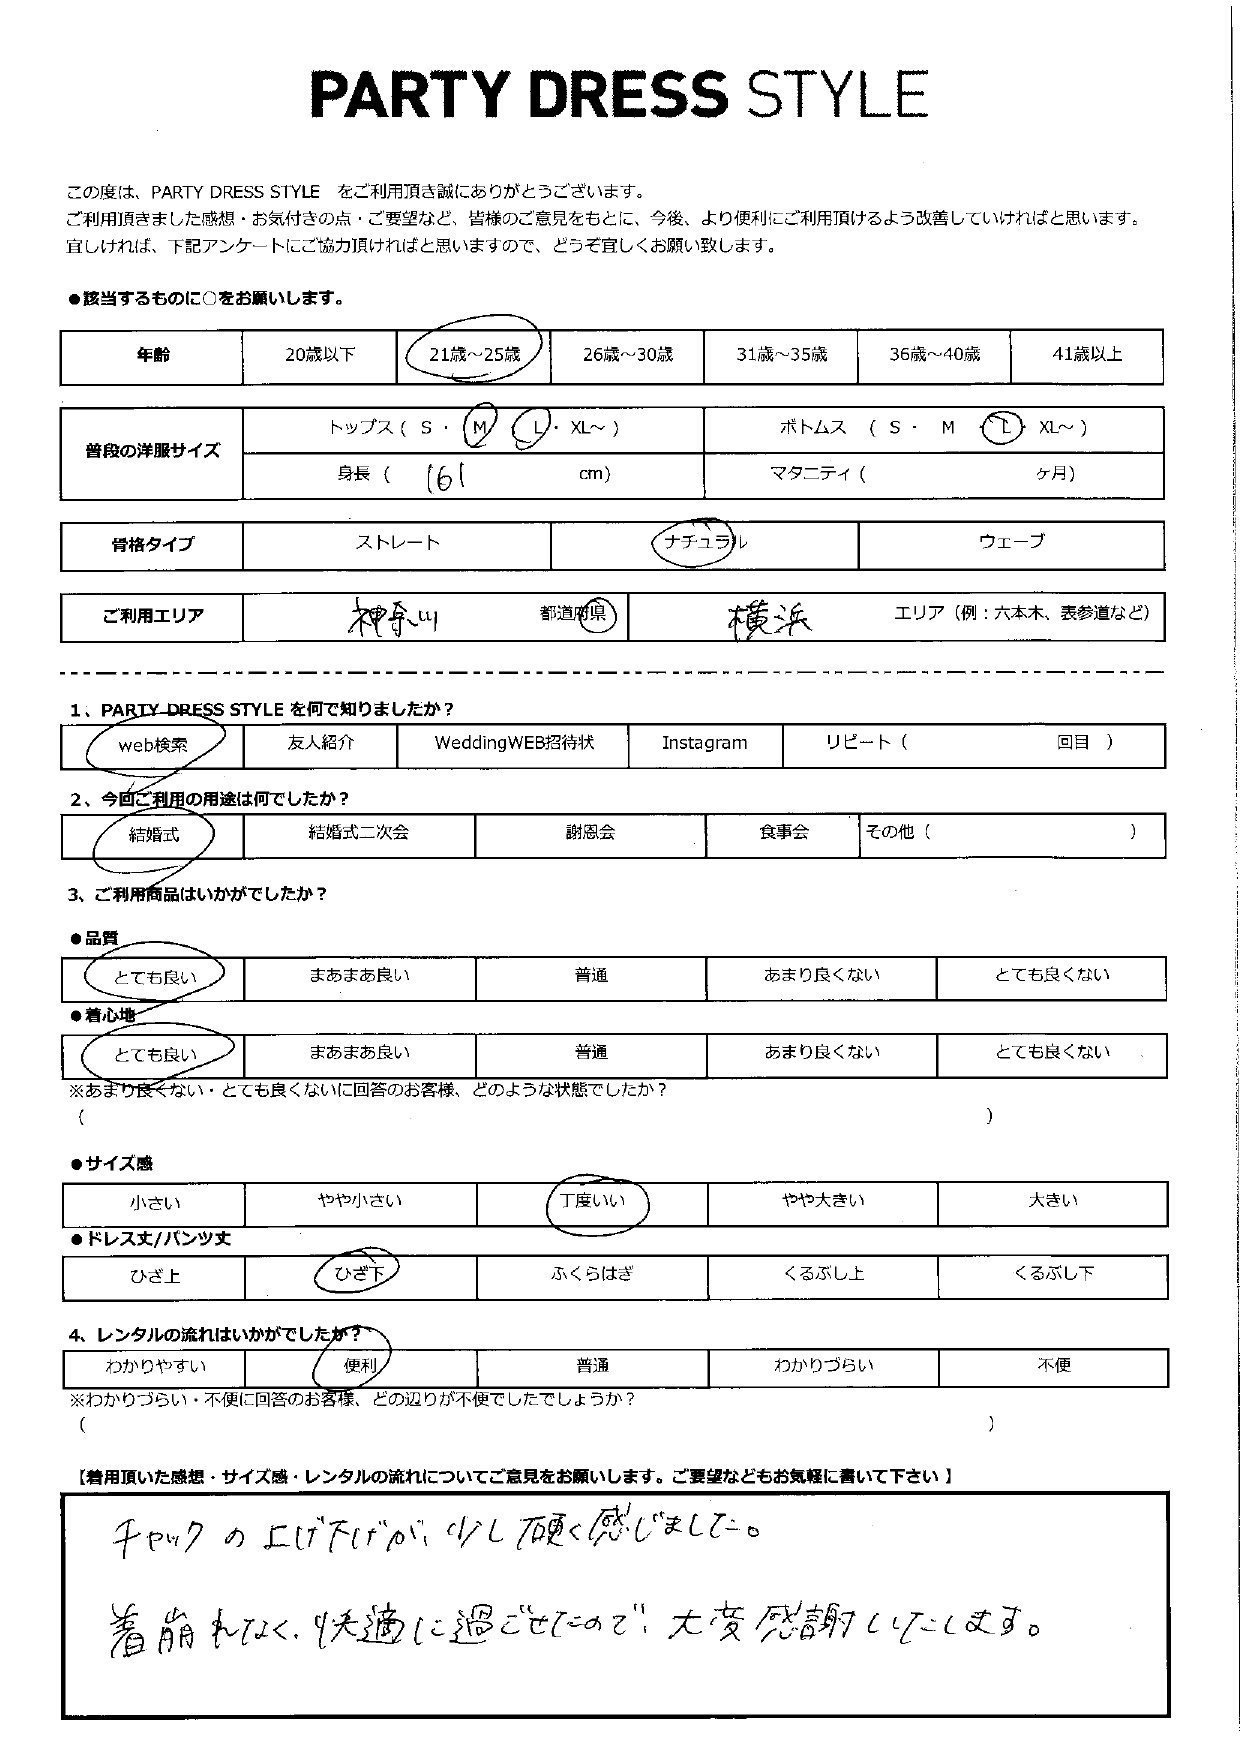 PARTY DRESS STYLE
この度は、PARTY DRESS STYLE をご利用頂き誠にありがとうございます。
ご利用頂きました感想・お気付きの点・ご要望など、皆様のご意見をもとに、今後、より便利にご利用頂けるよう改善していければと思います。
宜しければ、下記アンケートにご協力頂ければと思いますので、どうぞ宜しくお願い致します。
●該当するものに○をお願いします。
年齢 20歳以下 21歳～25歳 26歳～30歳 31歳～35歳 36歳～40歳 41歳以上
普段の洋服サイズ トップス ( S ・ M ・ L ・ XL～ ) ボトムス ( S ・ M ・ L ・ XL～ )
身長 ( 161 cm) マタニティ ( ヶ月)
骨格タイプ ストレート ナチュラル ウェーブ
ご利用エリア 神奈川 都道府県 横浜 エリア（例：六本木、表参道など）
1、PARTY DRESS STYLE を何で知りましたか？
web検索 友人紹介 WeddingWEB招待状 Instagram リピート ( 回目 )
2、今回ご利用の用途は何でしたか？
結婚式 結婚式二次会 謝恩会 食事会 その他 ( )
3、ご利用商品はいかがでしたか？
●品質
とても良い まあまあ良い 普通 あまり良くない とても良くない
●着心地
とても良い まあまあ良い 普通 あまり良くない とても良くない
※あまり良くない・とても良くないに回答のお客様、どのような状態でしたか？
( )
●サイズ感
小さい やや小さい 丁度いい やや大きい 大きい
●ドレス丈/パンツ丈
ひざ上 ひざ下 ふくらはぎ くるぶし上 くるぶし下
4、レンタルの流れはいかがでしたか？
わかりやすい 便利 普通 わかりづらい 不便
※わかりづらい・不便に回答のお客様、どの辺りが不便でしたでしょうか？
( )
【着用頂いた感想・サイズ感・レンタルの流れについてご意見をお願いします。ご要望などもお気軽に書いて下さい 】
チャックの上げ下げが、少し硬く感じました。
着崩れなく、快適に過ごせたので、大変感謝いたします。